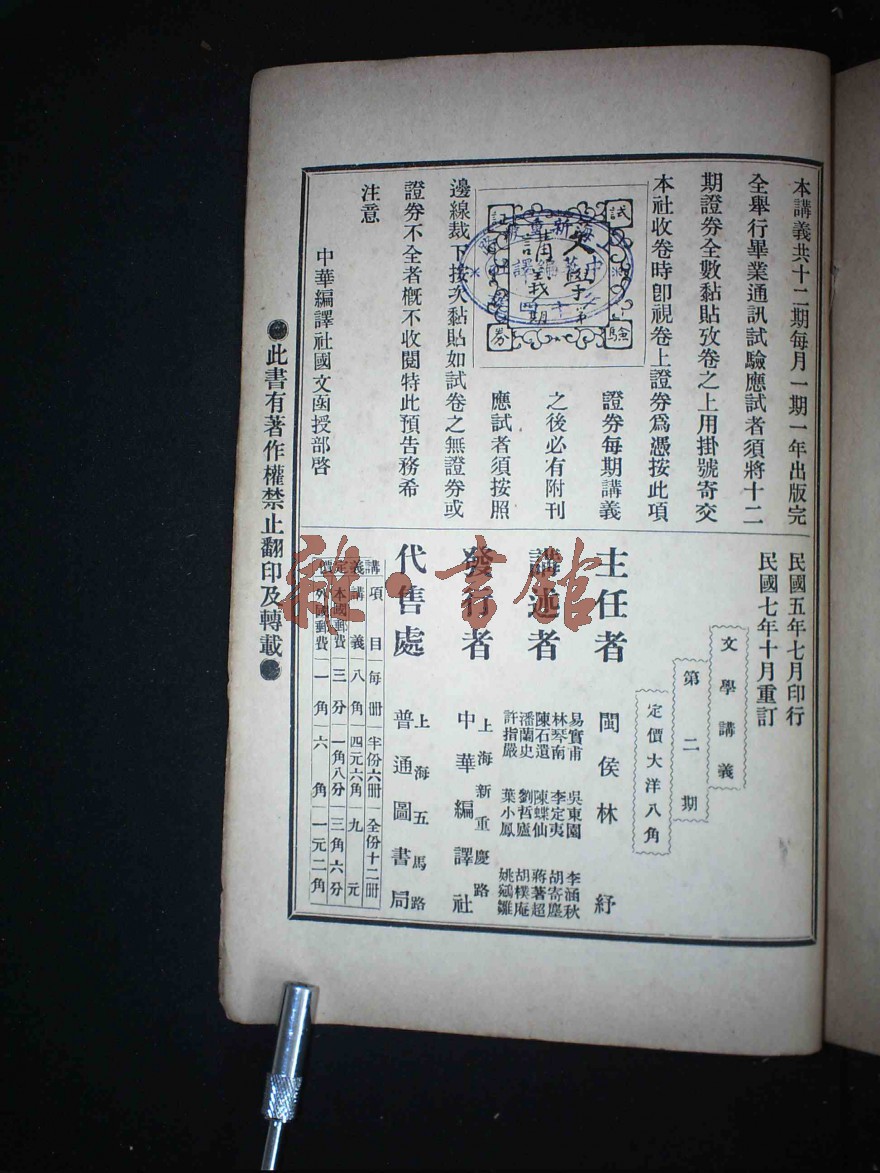 本講義共十二期每月一期一年出版完
全舉行畢業通訊試驗應試者須將十二
期證券全數黏貼攷卷之上用掛號寄交
本社收卷時卽視卷上證券爲憑按此項
證券每期講義
之後必有附刊
應試者須按照
邊線裁下按次黏貼如試卷之無證券或
證券不全者槪不收閱特此預告務希
注意
中華編譯社國文函授部啓
試驗
券
文學
講義
第
期
民國五年七月印行
民國七年十月重訂
文學講義
第二期
定價大洋八角
主任者 閩侯林紓
講述者
易實甫 吳東園 李涵秋
林琴南 李定夷 胡寄塵
陳石遺 陳蝶仙 蔣著超
潘蘭史 劉哲廬 胡樸庵
許指嚴 葉小鳳 姚鵷雛
發行者 上海新重慶路 中華編譯社
代售處 上海五馬路 普通圖書局
講義定價
項目 每冊 半份六冊 全份十二冊
講義 八角 四元六角 九元
本國郵費 三分 一角八分 三角六分
外國郵費 一角 六角 一元二角
●此書有著作權禁止翻印及轉載●
雜·書館